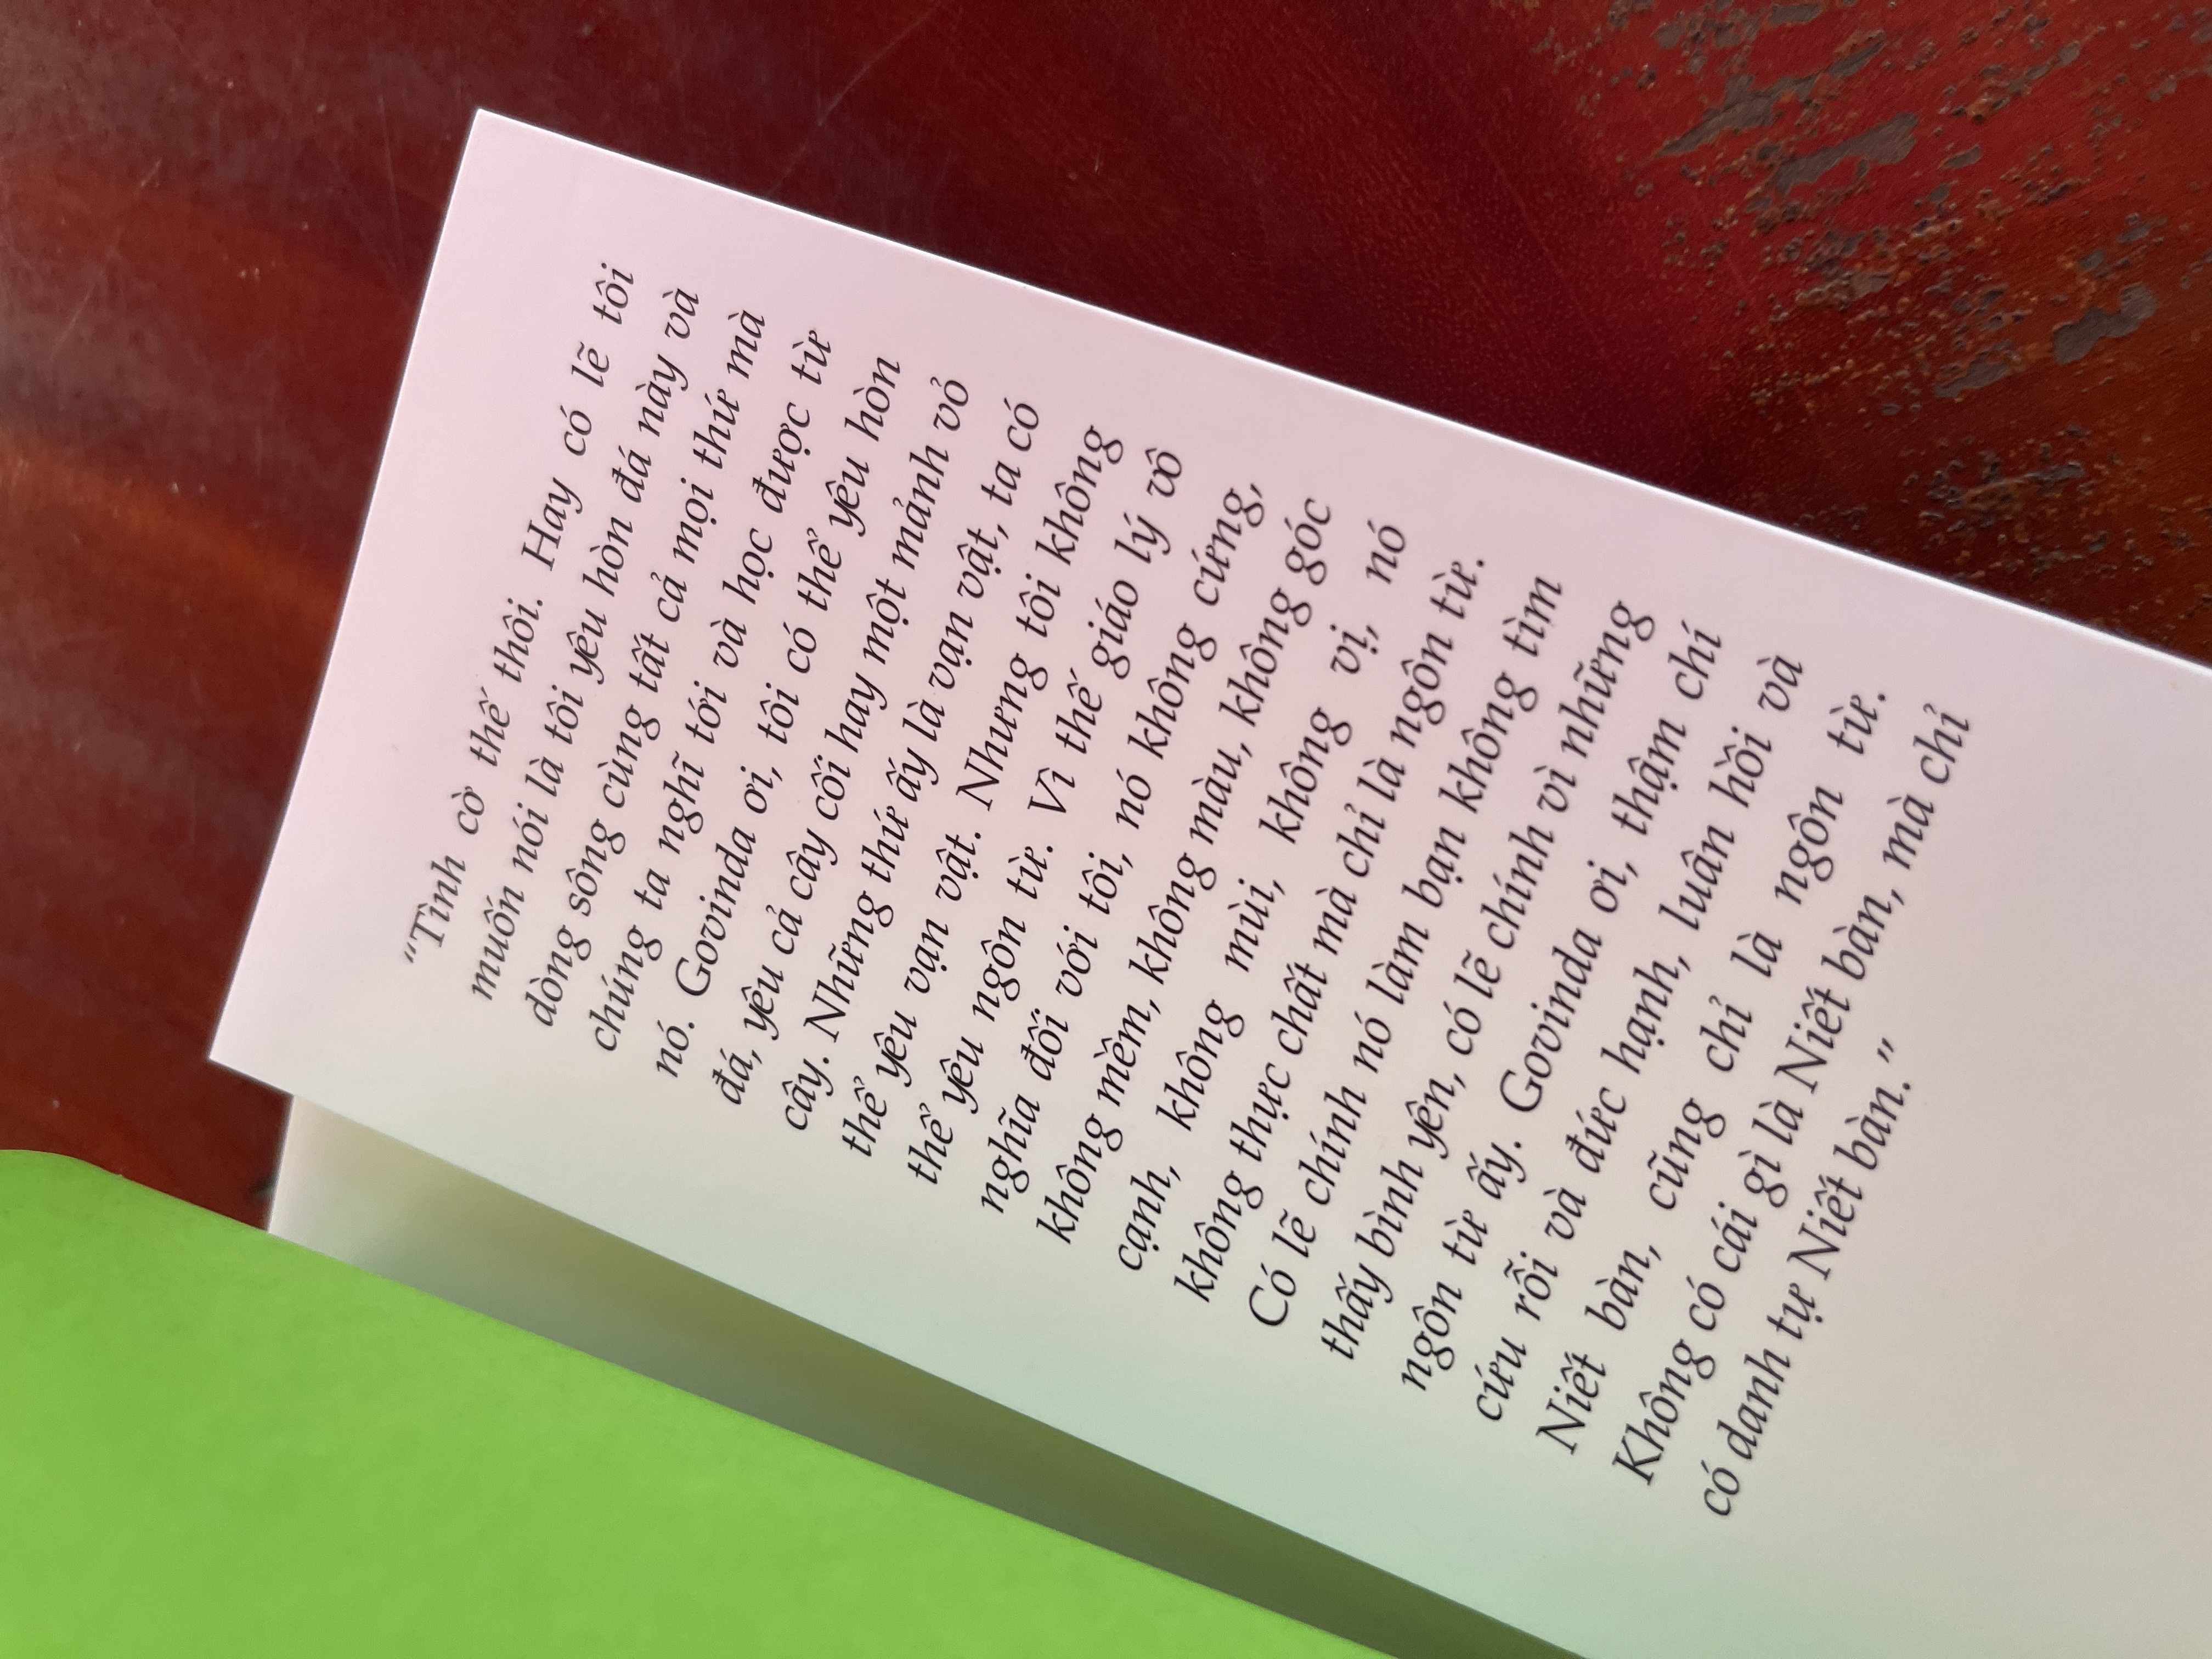 “Tình cờ thế thôi. Hay có lẽ tôi
muốn nói là tôi yêu hòn đá này và
dòng sông cùng tất cả mọi thứ mà
chúng ta nghĩ tới và học được từ
nó. Govinda ơi, tôi có thể yêu hòn
đá, yêu cả cây cối hay một mảnh vỏ
cây. Những thứ ấy là vạn vật, ta có
thể yêu vạn vật. Nhưng tôi không
thể yêu ngôn từ. Vì thế giáo lý vô
nghĩa đối với tôi, nó không cứng,
không mềm, không màu, không góc
cạnh, không mùi, không vị, nó
không thực chất mà chỉ là ngôn từ.
Có lẽ chính nó làm bạn không tìm
thấy bình yên, có lẽ chính vì những
ngôn từ ấy. Govinda ơi, thậm chí
cứu rỗi và đức hạnh, luân hồi và
Niết bàn, cũng chỉ là ngôn từ.
Không có cái gì là Niết bàn, mà chỉ
có danh tự Niết bàn.”